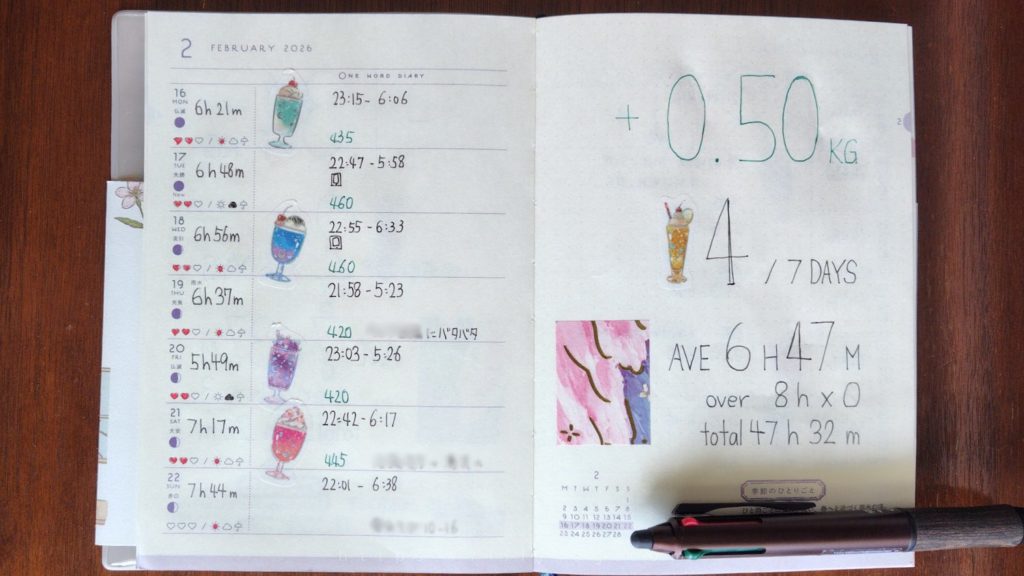 2 FEBRUARY 2026
ONE WORD DIARY
16 MON 仏滅 6h 21m 23:15 - 6:06
435
17 TUE 先勝 New 6h 48m 22:47 - 5:58
460
18 WED 友引 6h 56m 22:55 - 6:33
460
19 THU 先負 雨水 6h 37m 21:58 - 5:23
420 にバタバタ
20 FRI 仏滅 5h 49m 23:03 - 5:26
420
21 SAT 大安 7h 17m 22:42 - 6:17
445
22 SUN 赤口 7h 44m 22:01 - 6:38
+ 0.50 KG
2
4 / 7 DAYS
AVE 6 H 47 M
over 8h x 0
total 47 h 32 m
2
M T W T F S S
1
2 3 4 5 6 7 8
9 10 11 12 13 14 15
16 17 18 19 20 21 22
23 24 25 26 27 28
季節のひとりごと